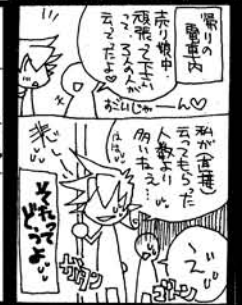 帰りの
電車内
売り娘中、
頑張って下さい
って、3人の人が
云ってったよ♡
おいじゃーん♡
私が直接
云ってもらった
人数より
多いねえ…
ははは
それって
どうよ
ガタン
ゴトン